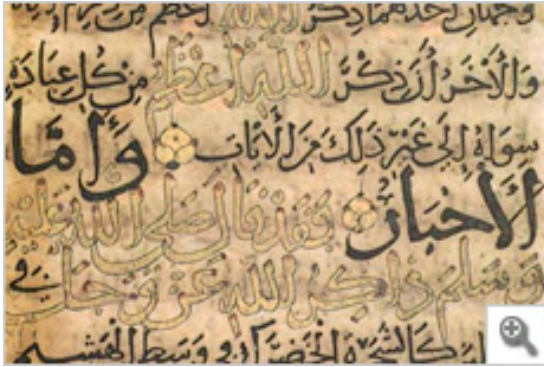 وجهان أحدهما ذكر الله أعظم من
والآخر أن ذكر الله أعظم من كل عبادة
سواه إلى غير ذلك من الآيات وأما
الأخبار فقد قال صلى الله عليه
وسلم ذاكر الله عز وجل في
كالشجرة الخضراء في وسط الهشيم